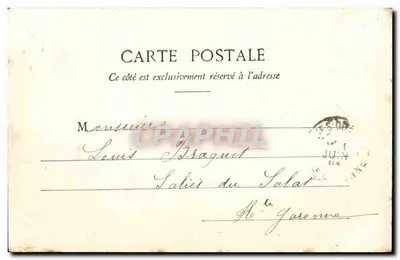 CARTE POSTALE
Ce côté est exclusivement réservé à l'adresse
Monsieur
Louis Braquet
Salies du Salat
Hte Garonne
CPAPHIL
JUIN